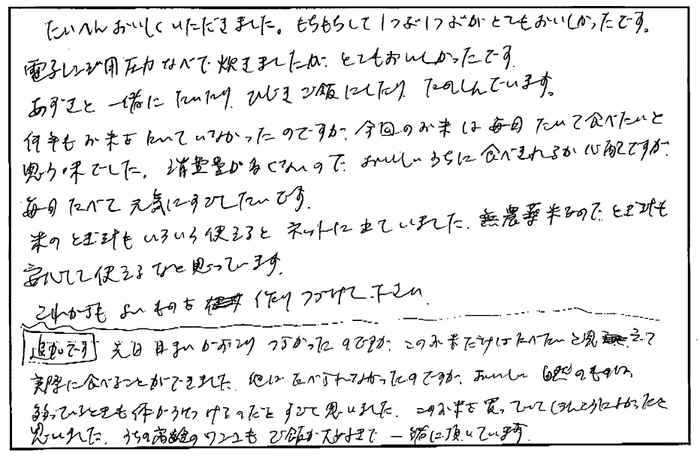 たいへんおいしくいただきました。もちもちして1つぶ1つぶがとてもおいしかったです。
電子レンジ用圧力なべで炊きましたが、とてもおいしかったです。
あずきと一緒にたいたり、ひじきご飯にしたり たのしんでいます。
何年もお米をたいていなかったのですが、今回のお米は毎日たいて食べたいと
思う味でした。消費量が多くないので、おいしいうちに食べきれるか心配ですが、
毎日たべて元気にすごしたいです。
米のとぎ汁もいろいろ使えるとネットに出ていました。無農薬米なので、とぎ汁も
安心して使えるなと思っています。
これからもよいものを作りつづけて下さい。
追加です 先日目まいがおこりつらかったのですが、このお米だけはたべたいと思えて
実際に食べることができました。他は食べられなかったのですが、おいしい自然のものは
弱っているときも体がうけつけるのだとすごく思いました。このお米を買っていてほんとうによかったと
思いました。うちの高齢のワンコもご飯が大好きで一緒に頂いています。